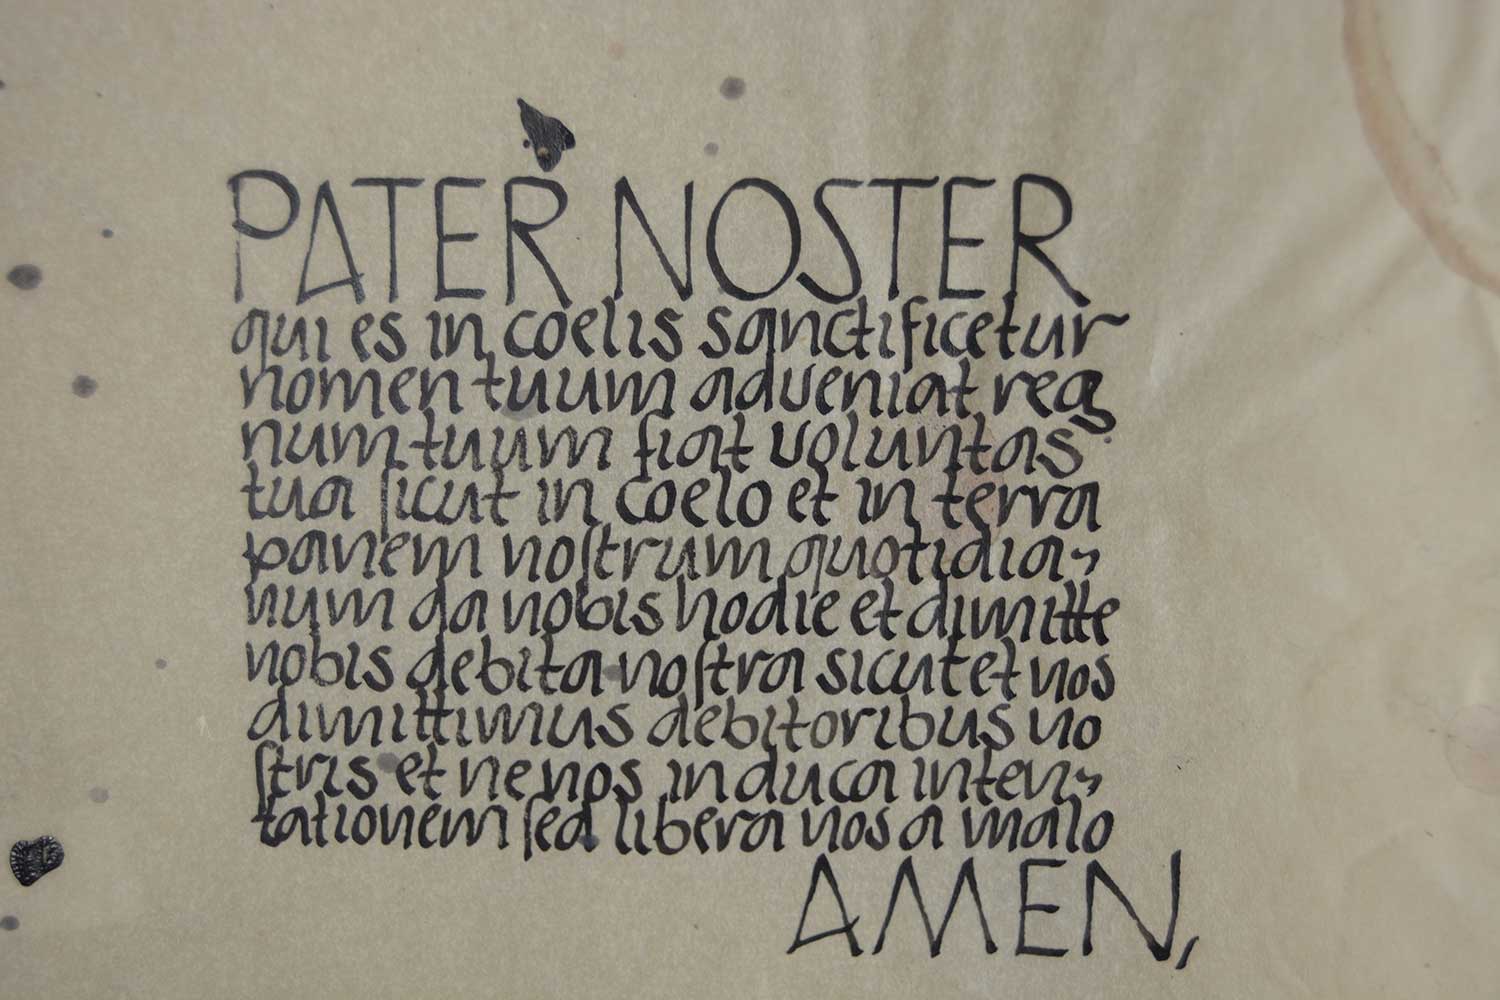 PATER NOSTER
qui es in coelis sanctificetur
nomen tuum adveniat reg
num tuum fiat voluntas
tua ſicut in coelo et in terra
panem noſtrum quotidia-
num da nobis hodie et dimitte
nobis debita noſtra sicut et nos
dimittimus debitoribus no
ſtris et ne nos inducа in ten-
tationem ſed libera nos a malo
AMEN,